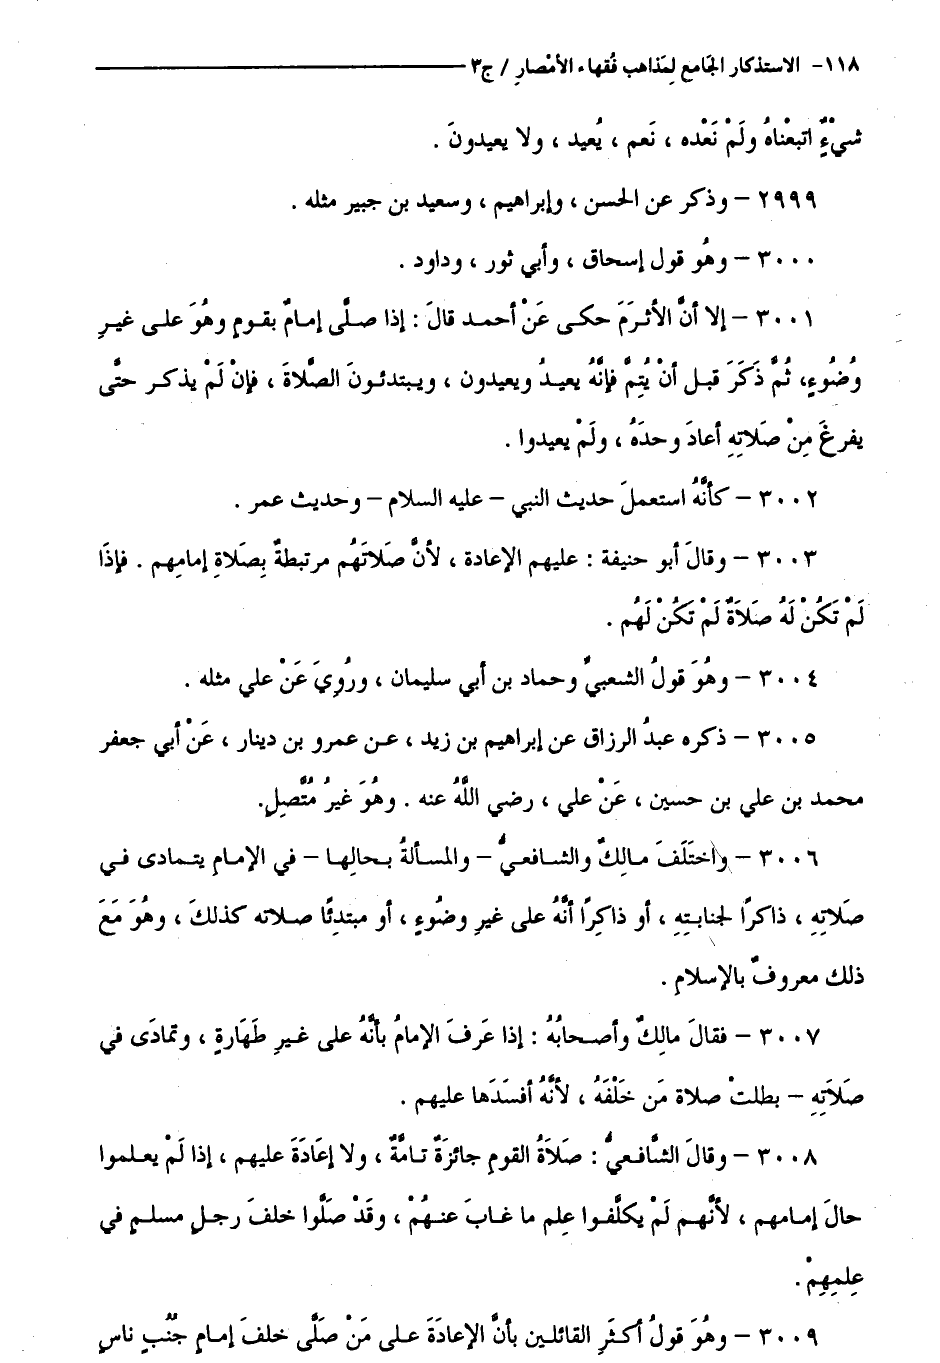 ١١٨- الاستذكار الجَامع لِمَذاهب فُقهاء الأمْصارِ / ج٣
شيْءٌ اتبعْناهُ ولَمْ نَعْده ، نَعم ، يُعيد ، ولا يعيدونَ .
٢٩٩٩ – وذكر عن الحسن ، وإبراهيم ، وسعيد بن جبير مثله .
٣٠٠٠ – وهُو قول إسحاق ، وأبي ثور ، وداود .
٣٠٠١ – إلا أنَّ الأثرَمَ حكى عَنْ أحمد قالَ : إذا صلَّى إمامٌ بقومٍ وهُوَ على غيرِ
وُضُوءٍ، ثُمَّ ذَكَرَ قبل أنْ يُتِمَّ فإنَّهُ يعيدُ ويعيدون ، ويبتدئونَ الصَّلاةَ ، فإنْ لَمْ يذكر حتَّى
يفرغَ مِنْ صَلاتِهِ أعادَ وحدَهُ ، ولَمْ يعيدوا .
٣٠٠٢ – كأنَّهُ استعملَ حديث النبي – عليه السلام – وحديث عمر .
٣٠٠٣ – وقالَ أبو حنيفة : عليهم الإعادة ، لأنَّ صَلاتَهُم مرتبطةٌ بِصَلاةِ إمامِهم . فإذَا
لَمْ تَكُنْ لَهُ صَلاَةٌ لَمْ تَكُنْ لَهُم .
٣٠٠٤ – وهُوَ قولُ الشعبيِّ وحماد بن أبي سليمان ، ورُوِيَ عَنْ علي مثله .
٣٠٠٥ – ذكره عبدُ الرزاق عن إبراهيم بن زيد ، عـن عمرو بن دينار ، عَنْ أبي جعفر
محمد بن علي بن حسين ، عَنْ علي ، رضي اللَّهُ عنه . وهُوَ غيرُ مُتَّصِلٍ.
٣٠٠٦ – واختَلَفَ مـالِكٌ والشافعيُّ – والمسألةُ بـحالِها – في الإمامِ يتـمادى في
صَلاتِهِ ، ذاكرًا لجنابتِهِ ، أو ذاكِرًا أنَّهُ على غيرِ وضُوءٍ ، أو مبتدئًا صلاته كذلكَ ، وهُوَ مَعَ
ذلك معروفٌ بالإسلامِ .
٣٠٠٧ – فقالَ مالِكٌ وأصحابُهُ : إذا عَرفَ الإمامُ بأنَّهُ على غيرِ طَهَارةٍ ، وتمادَى في
صَلاَتِهِ – بطلتْ صلاة مَن خَلْفَهُ ، لأنَّهُ أفسَدَها عليهم .
٣٠٠٨ – وقالَ الشَّافعيُّ : صَلاَةُ القومِ جائزَةٌ تـامَّةٌ ، ولا إعَادَةَ عليهم ، إذا لَمْ يعـلموا
حالَ إمـامهم ، لأنَّهم لَمْ يكلَّفـوا عِلم ما غـابَ عنـهُمْ ، وقَدْ صلَّوا خلفَ رجلٍ مسلمٍ في
عِلمِهِمْ .
٣٠٠٩ – وهُوَ قولُ أكثَرِ القائلين بأنَّ الإعادَةَ علـى مَنْ صَلَّى خلفَ إمـامٍ جُنُبٍ ناسٍ